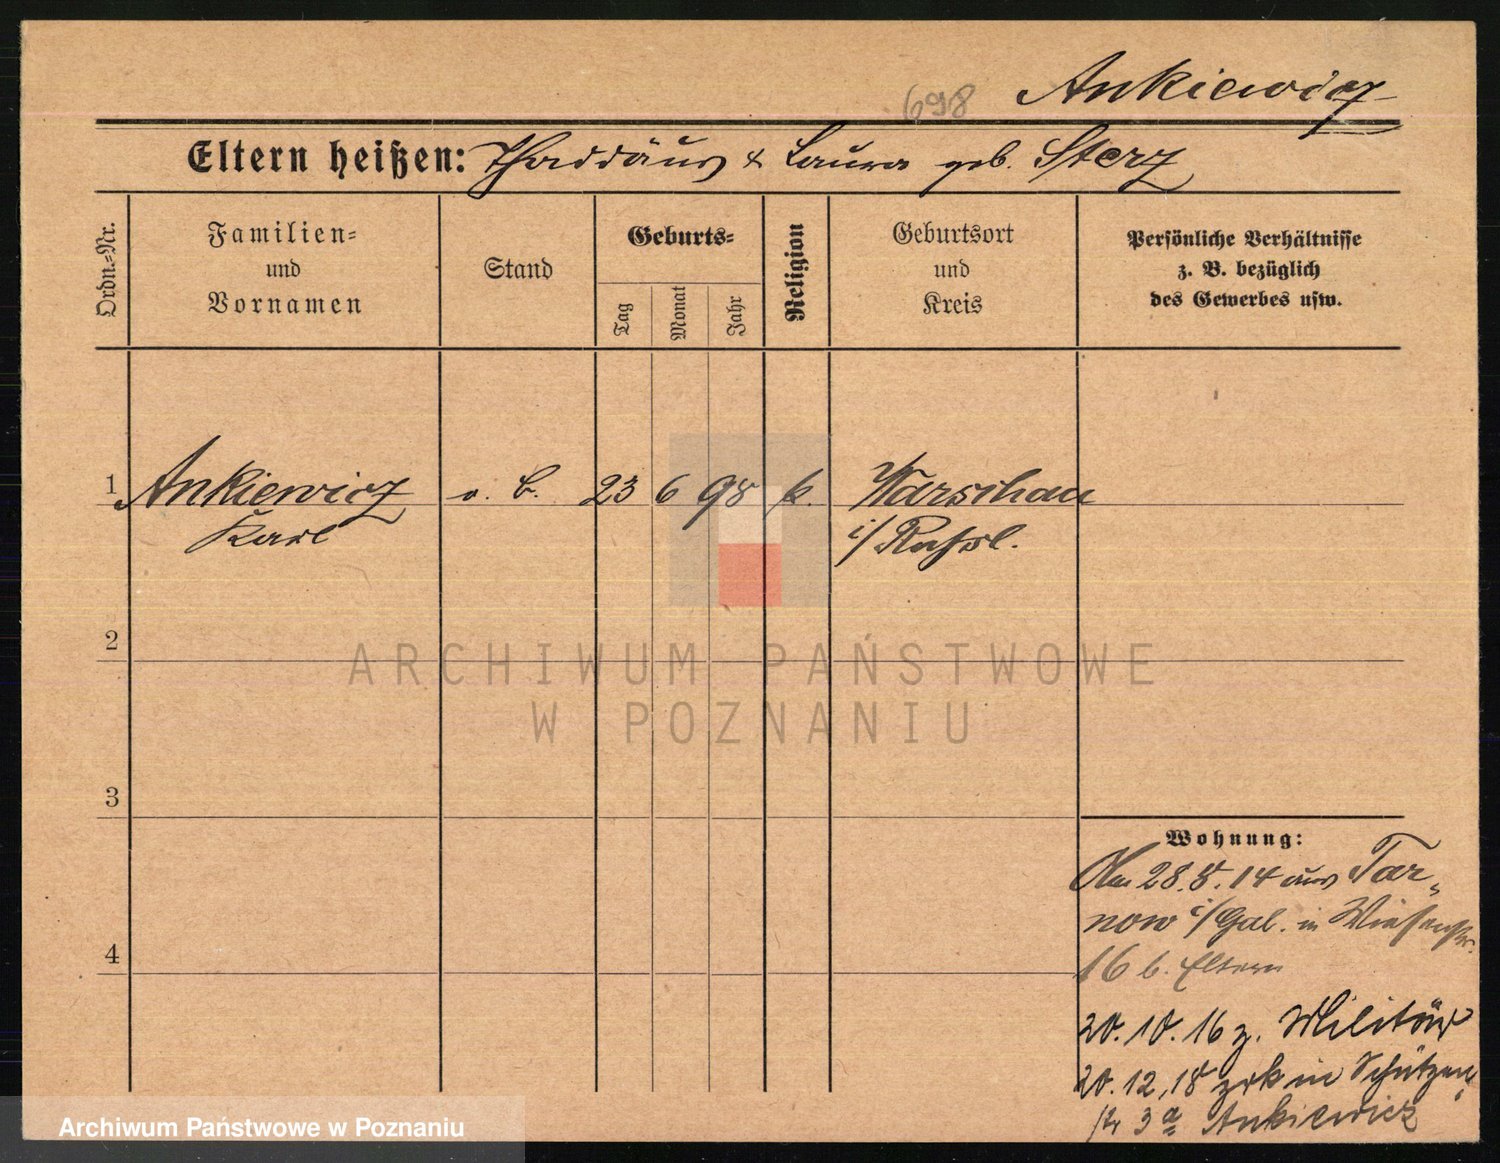 698 Ankiewicz
Eltern heißen: Thaddäus & Laura geb. Sterz
Ordn.-Nr.
Familien-
und
Vornamen
Stand
Geburts-
Tag
Monat
Jahr
Religion
Geburtsort
und
Kreis
Persönliche Verhältnisse
z. B. bezüglich
des Gewerbes usw.
1 Ankiewicz o. B. 23 6 98 k. Warschau
Karl i/ Rußl.
2
3
4
Wohnung:
Am 28.8.14 aus Tar-
now i/Gal. in Wiesenstr.
16 b. Eltern
20.10.16 z. Militär
20.12.18 zrk in Schützen
str 3a Ankiewicz
ARCHIWUM PAŃSTWOWE
W POZNANIU
Archiwum Państwowe w Poznaniu